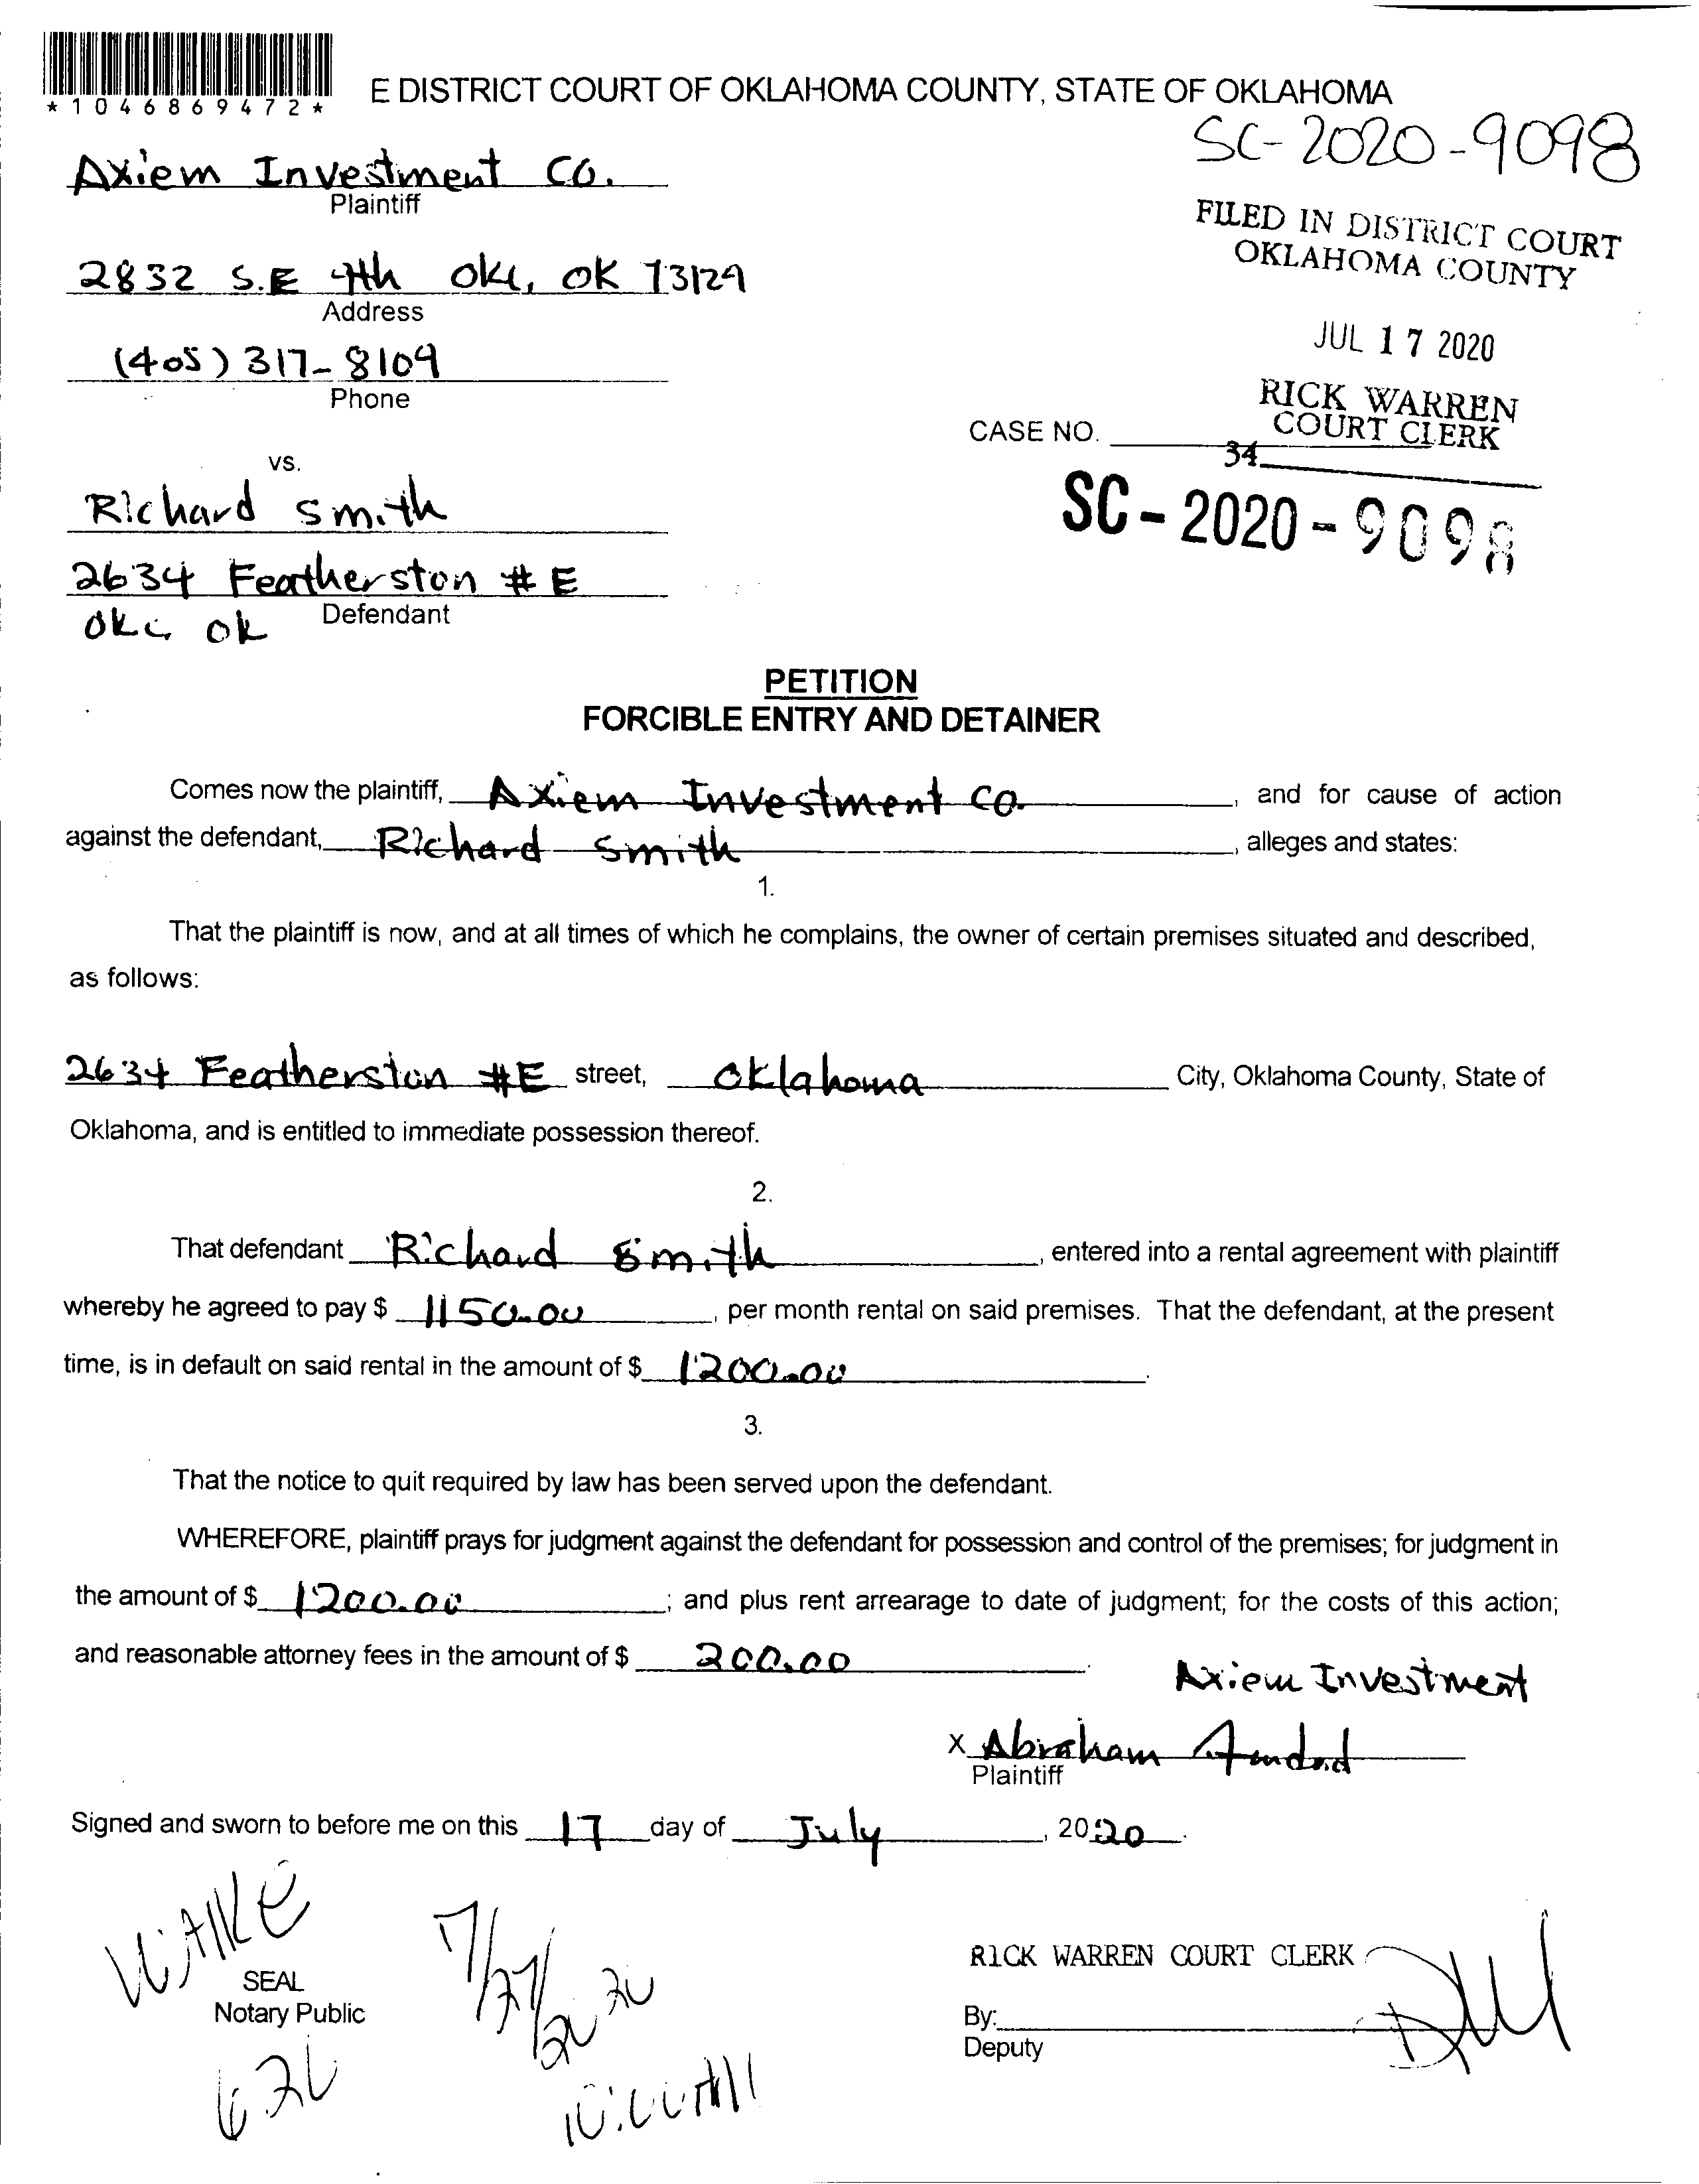 *1046869472*
E DISTRICT COURT OF OKLAHOMA COUNTY, STATE OF OKLAHOMA
SC-2020-9098
Axiem Investment Co.
Plaintiff
FILED IN DISTRICT COURT
OKLAHOMA COUNTY
2832 S.E 4th OKC, OK 73129
Address
JUL 17 2020
(405) 317-8109
Phone
RICK WARREN
COURT CLERK
CASE NO.
34
vs.
Richard Smith
SC-2020-9098
2634 Featherston #E
Defendant
OKC, OK
PETITION
FORCIBLE ENTRY AND DETAINER
Comes now the plaintiff, Axiem Investment Co. , and for cause of action
against the defendant, Richard Smith , alleges and states:
1.
That the plaintiff is now, and at all times of which he complains, the owner of certain premises situated and described,
as follows:
2634 Featherston #E street, Oklahoma City, Oklahoma County, State of
Oklahoma, and is entitled to immediate possession thereof.
2.
That defendant Richard Smith , entered into a rental agreement with plaintiff
whereby he agreed to pay $ 1150.00 , per month rental on said premises. That the defendant, at the present
time, is in default on said rental in the amount of $ 1200.00 .
3.
That the notice to quit required by law has been served upon the defendant.
WHEREFORE, plaintiff prays for judgment against the defendant for possession and control of the premises; for judgment in
the amount of $ 1200.00 ; and plus rent arrearage to date of judgment; for the costs of this action;
and reasonable attorney fees in the amount of $ 200.00 .
Axiem Investment
X Abraham
Plaintiff
Signed and sworn to before me on this 17 day of July , 2020 .
SEAL
Notary Public
7/27/2020
626
10:00AM
RICK WARREN COURT CLERK
By:
Deputy